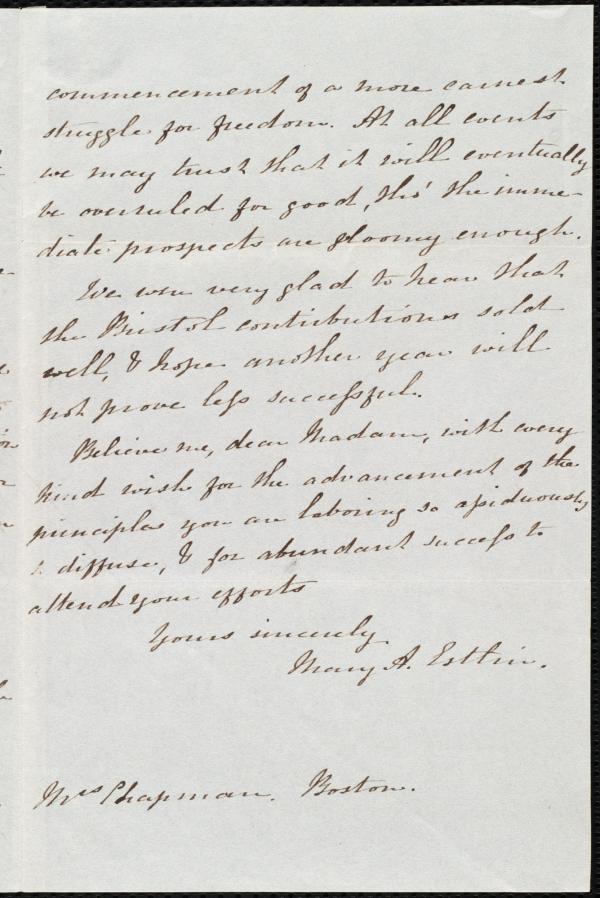 commencement of a more earnest
struggle for freedom. At all events
we may trust that it will eventually
be overruled for good, tho' the imme-
diate prospects are gloomy enough.
We were very glad to hear that
the Bristol contributions sold
well, & hope another year will
not prove less successful.
Believe me, dear Madam, with every
kind wish for the advancement of the
principles you are laboring so assiduously
to diffuse, & for abundant success to
attend your efforts
Yours sincerely
Mary A. Estlin.
Mrs Chapman. Boston.